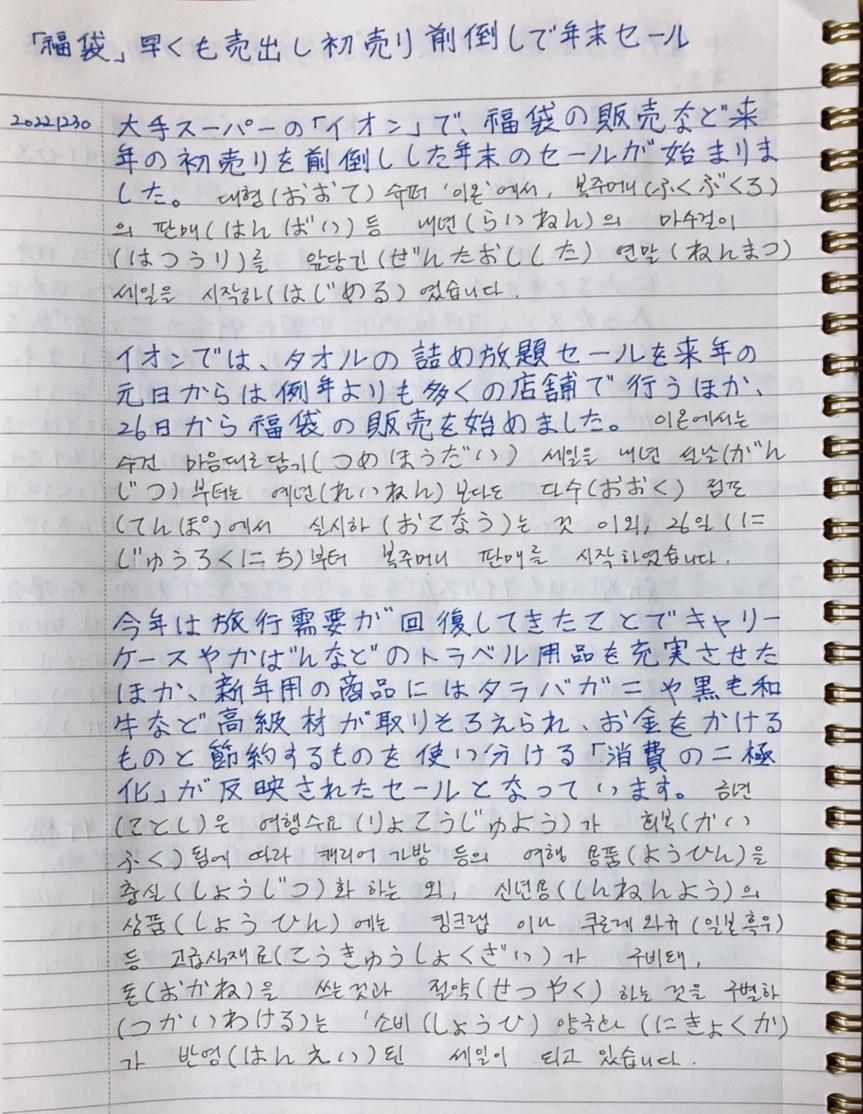 「福袋」早くも売出し初売り前倒しで年末セール
20221230
大手スーパーの「イオン」で、福袋の販売など来
年の初売りを前倒しした年末のセールが始まりま
した。 대형(おおて) 슈퍼 '이온'에서, 복주머니(ふくぶくろ)
의 판매(はんばい) 등 내년(らいねん)의 마수걸이
(はつうり)를 앞당긴(ぜんたおしした) 연말(ねんまつ)
세일을 시작하(はじめる)였습니다.
イオンでは、タオルの詰め放題セールを来年の
元日からは例年よりも多くの店舗で行うほか、
26日から福袋の販売を始めました。 이온에서는
수건 마음대로담기(つめほうだい) 세일을 내년 설날(がん
じつ)부터는 예년(れいねん)보다도 다수(おおく) 점포
(てんぽ)에서 실시하(おこなう)는 것 이외, 26일(に
じゅうろくにち)부터 복주머니 판매를 시작하였습니다.
今年は旅行需要が回復してきたことでキャリー
ケースやかばんなどのトラベル用品を充実させた
ほか、新年用の商品にはタラバガニや黒毛和
牛など高級材が取りそろえられ、お金をかける
ものと節約するものを使い分ける「消費の二極
化」が反映されたセールとなっています。 금년
(ことし)은 여행수요(りょこうじゅよう)가 회복(かい
ふく)됨에 따라 캐리어가방 등의 여행 용품(ようひん)을
충실(しょうじつ)화 하는 외, 신년용(しんねんよう)의
상품(しょうひん)에는 킹크랩 이나 쿠로게 와규(일본흑우)
등 고급식재료(こうきゅうしょくざい)가 구비돼,
돈(おかね)을 쓰는것과 절약(せつやく)하는 것을 구별하
(つかいわける)는 '소비(しょうひ) 양극화(にきょくか)
가 반영(はんえい)된 세일이 되고 있습니다.